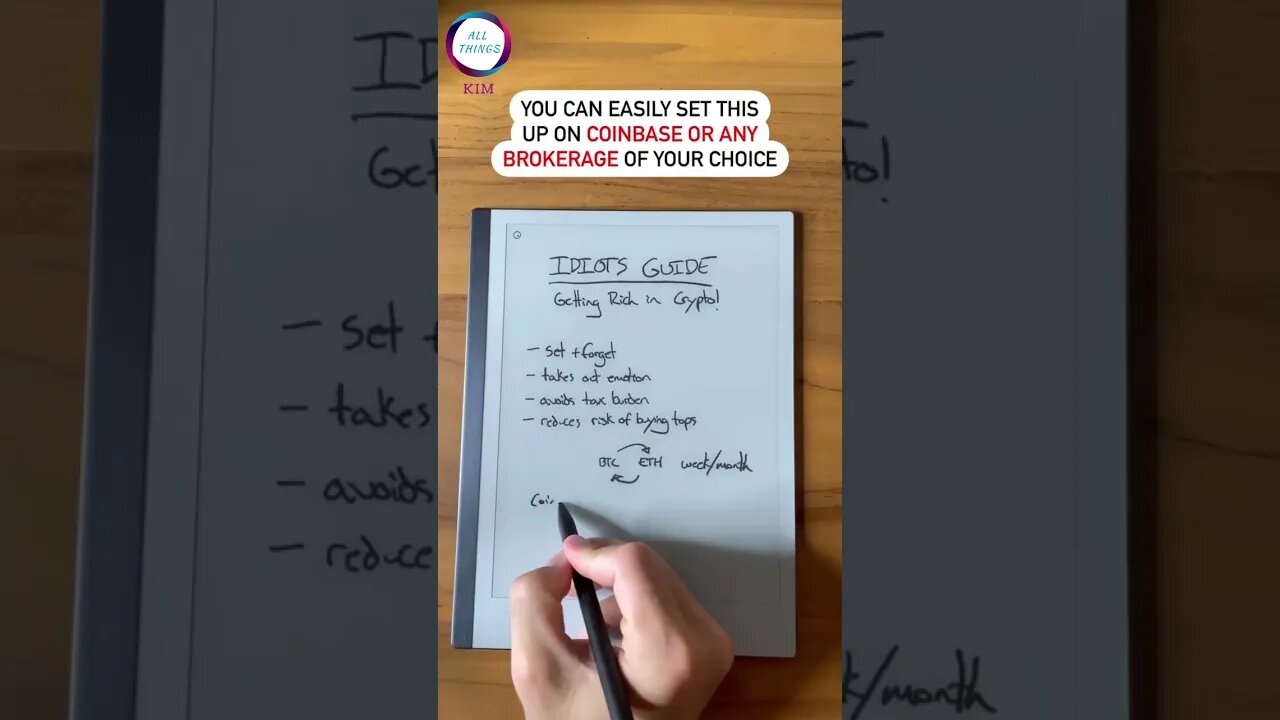 ALL
THINGS
KIM
YOU CAN EASILY SET THIS
UP ON COINBASE OR ANY
BROKERAGE OF YOUR CHOICE
IDIOTS GUIDE
Getting Rich in Crypto!
- set + forget
- takes out emotion
- avoids tax burden
- reduces risk of buying tops
BTC ETH week/month
Coin